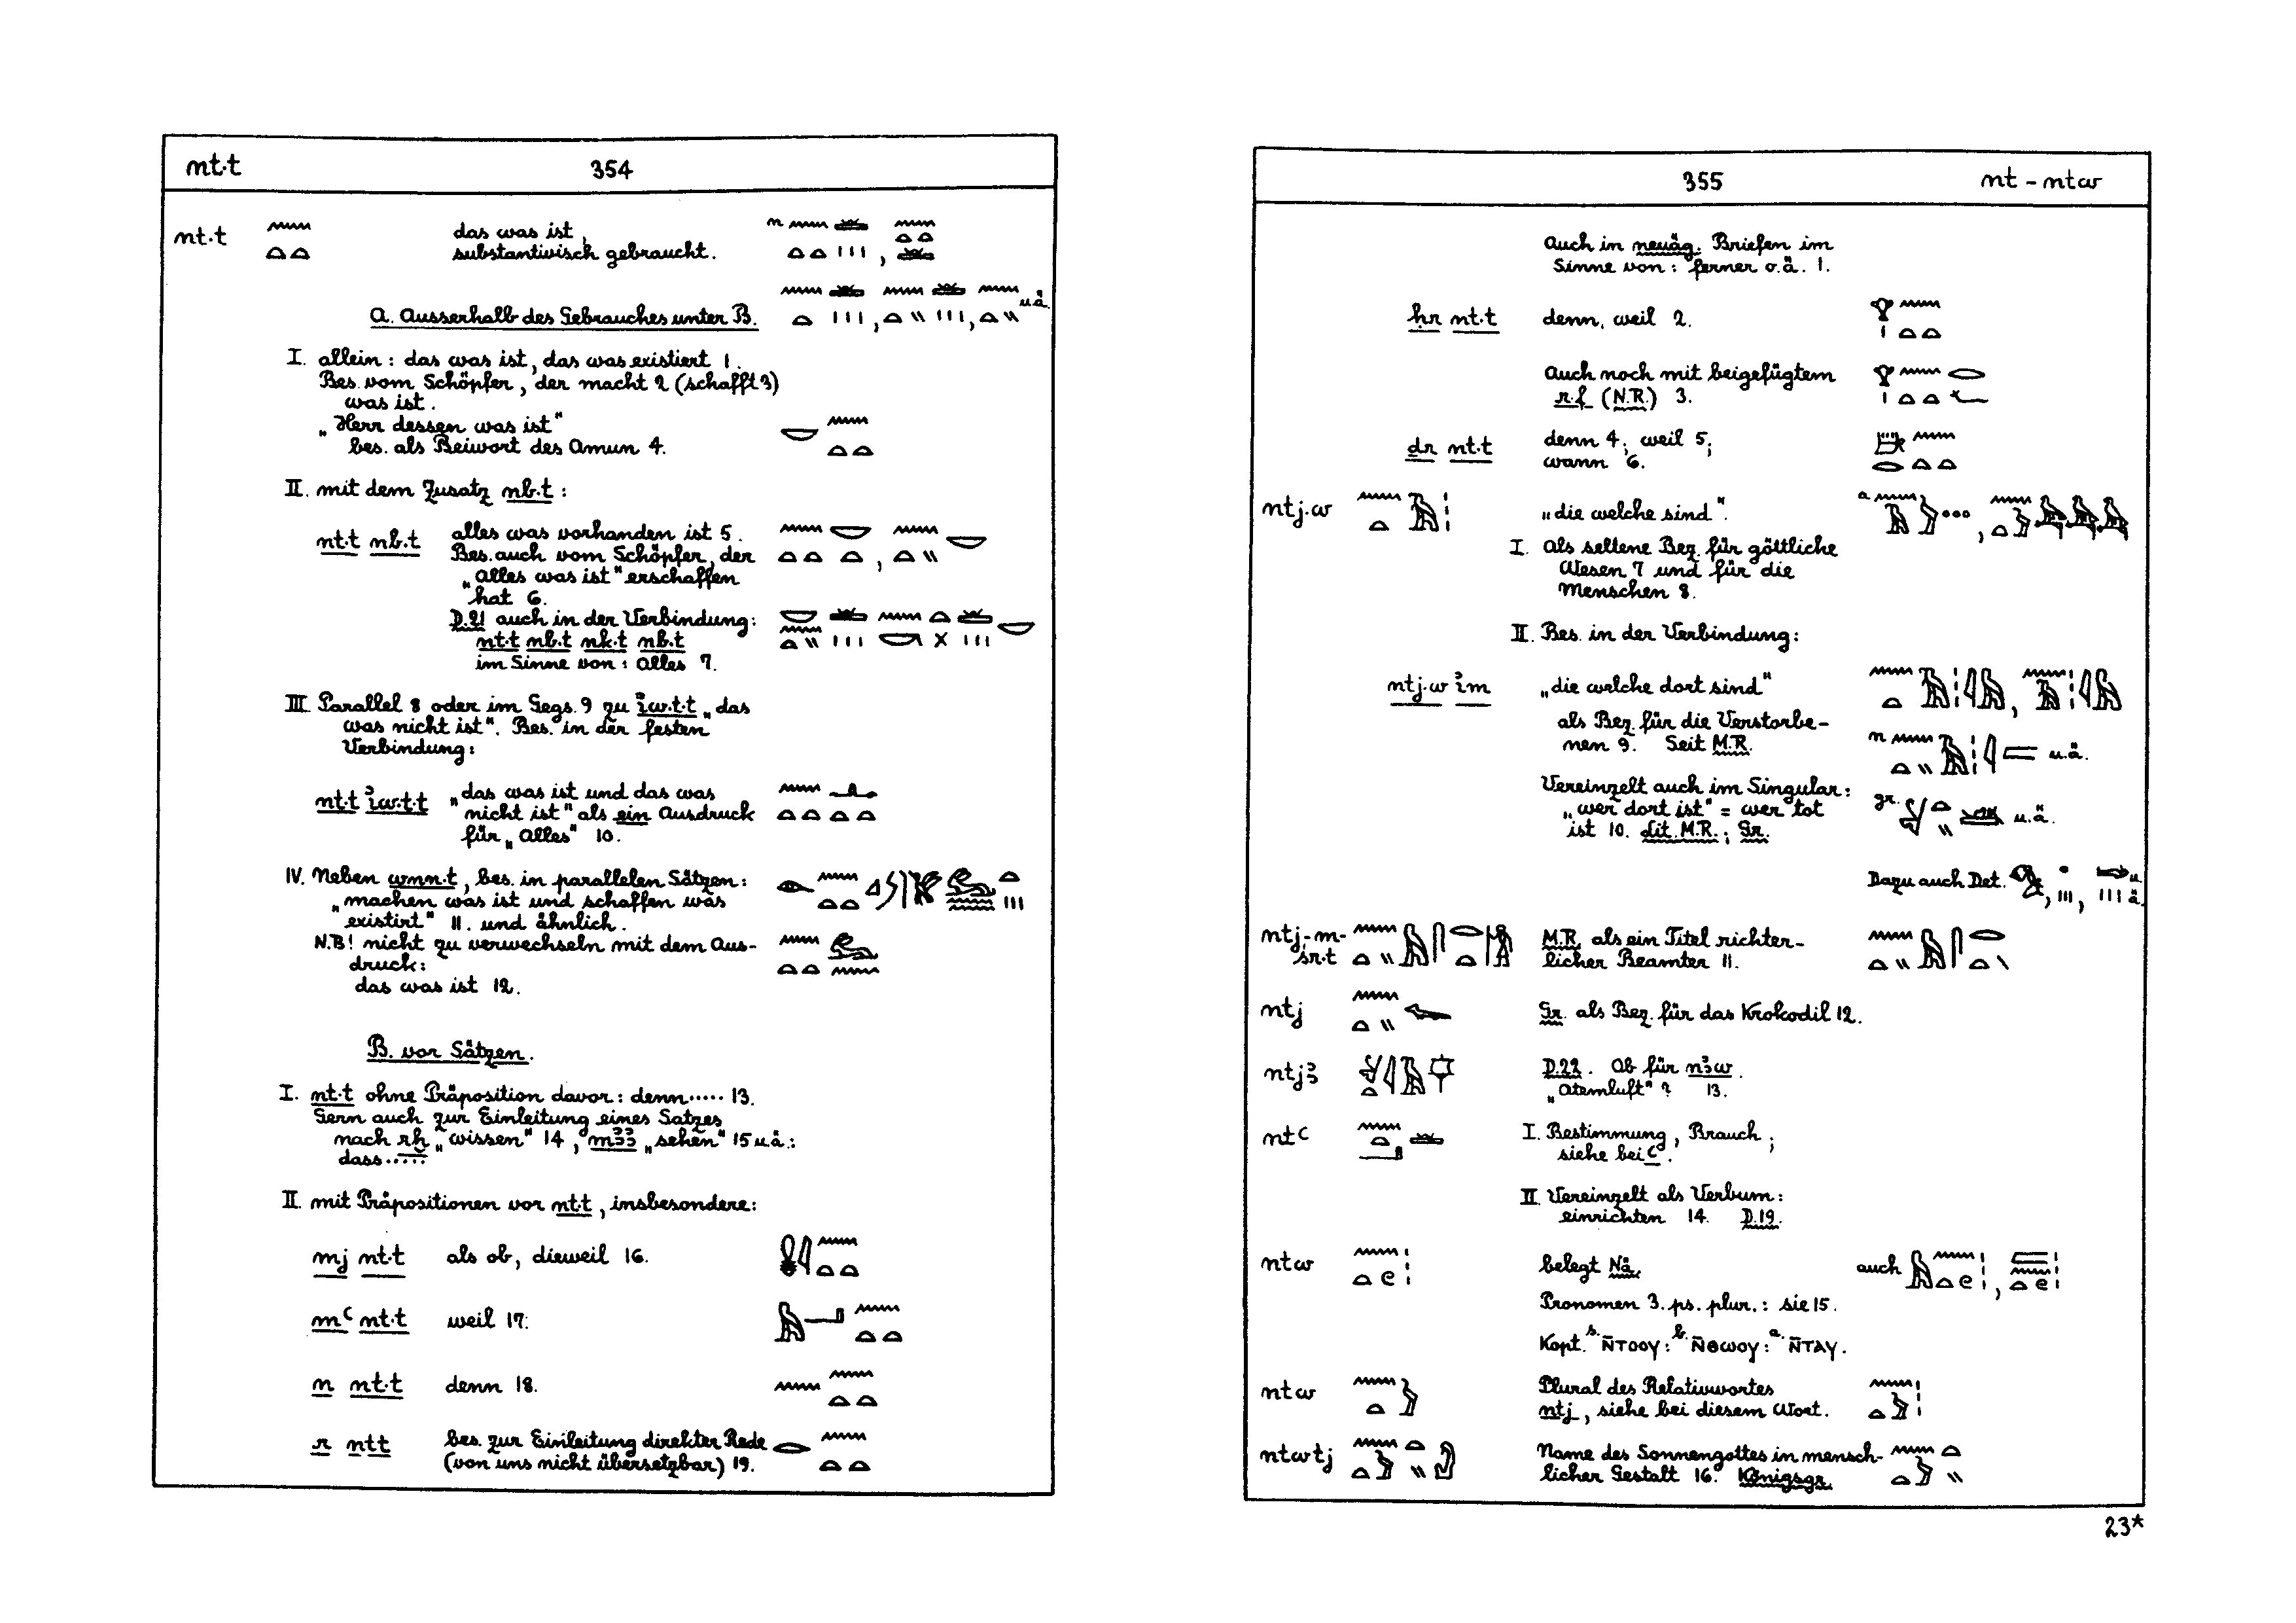 nt·t 354
nt·t das was ist,
substantivisch gebraucht.
A. Ausserhalb des Gebrauches unter B. u.ä.
I. allein: das was ist, das was existiert 1.
Bes. vom Schöpfer, der macht 2 (schafft 3)
was ist.
„Herr dessen was ist"
bes. als Beiwort des Amun 4.
II. mit dem Zusatz nb·t:
nt·t nb·t alles was vorhanden ist 5.
Bes. auch vom Schöpfer, der
„alles was ist" erschaffen
hat 6.
D.21 auch in der Verbindung:
nt·t nb·t nk·t nb·t
im Sinne von: alles 7.
III. Parallel 8 oder im Gegs. 9 zu ỉw.t·t „das
was nicht ist". Bes. in der festen
Verbindung:
nt·t ỉw.t·t „das was ist und das was
nicht ist" als ein Ausdruck
für „alles" 10.
IV. Neben wnn·t, bes. in parallelen Sätzen:
„machen was ist und schaffen was
existirt" 11. und ähnlich.
N.B! nicht zu verwechseln mit dem Aus-
druck:
das was ist 12.
B. vor Sätzen.
I. nt·t ohne Präposition davor: denn····· 13.
Gern auch zur Einleitung eines Satzes
nach rḫ „wissen" 14, mꜣꜣ „sehen" 15 u.ä.:
dass·····
II. mit Präpositionen vor nt·t, insbesondere:
mj nt·t als ob, dieweil 16.
mꜥ nt·t weil 17.
n nt·t denn 18.
r ntt bes. zur Einleitung direkter Rede
(von uns nicht übersetzbar) 19.
355 nt – ntw
Auch in neuäg. Briefen im
Sinne von: ferner o.ä. 1.
ḥr nt·t denn, weil 2.
Auch noch mit beigefügtem
r.f (N.R.) 3.
dr nt·t denn 4; weil 5;
wann 6.
ntj.w „die welche sind".
I. Als seltene Bez. für göttliche
Wesen 7 und für die
Menschen 8.
II. Bes. in der Verbindung:
ntj.w ỉm „die welche dort sind"
als Bez. für die Verstorbe-
nen 9. Seit M.R. u.ä.
Vereinzelt auch im Singular:
„wer dort ist" = wer tot
ist 10. Lit. M.R.; Gr. gr. u.ä.
Dazu auch Det. u.ä.
ntj-m-
sr·t M.R. als ein Titel richter-
licher Beamter 11.
ntj Gr. als Bez. für das Krokodil 12.
ntjꜣ D.22. Ob für nꜣw
„Atemluft"? 13.
ntꜥ I. Bestimmung, Brauch;
siehe bei ꜥ.
II. Vereinzelt als Verbum:
einrichten 14. D.19.
ntw belegt Nä. auch
Pronomen 3. ps. plur.: sie 15.
Kopt. s. ⲛ̄ⲧⲟⲟⲩ: b. ⲛ̄ⲑⲱⲟⲩ: a. ⲛ̄ⲧⲁⲩ.
ntw Plural des Relativwortes
ntj, siehe bei diesem Wort.
ntwtj Name des Sonnengottes in mensch-
licher Gestalt 16. Königsgr.
23*